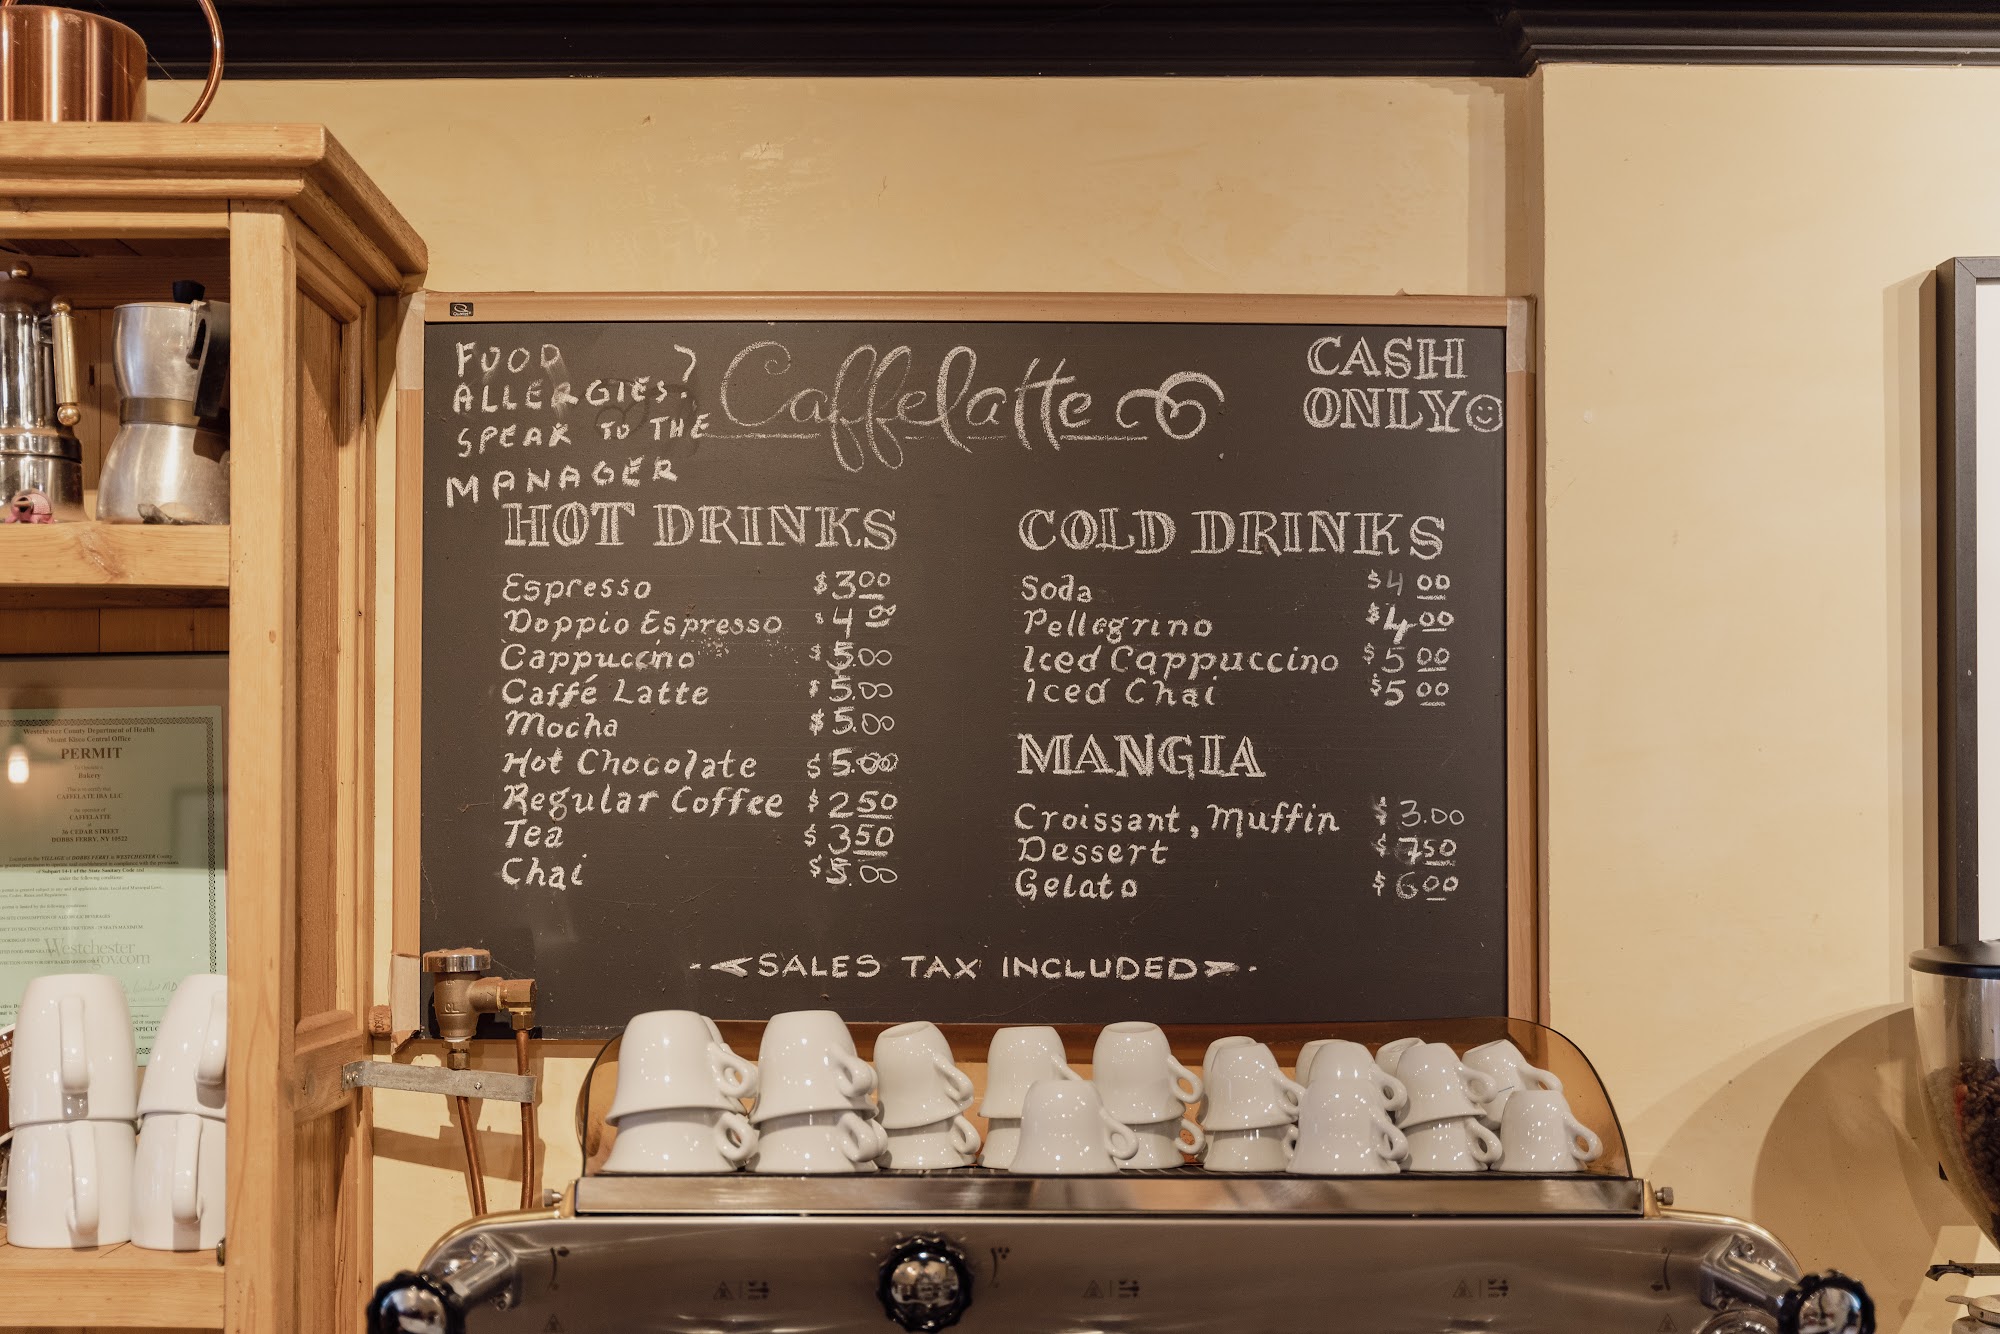 FOOD
ALLERGIES?
SPEAK TO THE
MANAGER
Caffelatte
CASH
ONLY
HOT DRINKS
Espresso $3.00
Doppio Espresso $4.00
Cappuccino $5.00
Caffé Latte $5.00
Mocha $5.00
Hot Chocolate $5.00
Regular Coffee $2.50
Tea $3.50
Chai $5.00
COLD DRINKS
Soda $4.00
Pellegrino $4.00
Iced Cappuccino $5.00
Iced Chai $5.00
MANGIA
Croissant, Muffin $3.00
Dessert $7.50
Gelato $6.00
SALES TAX INCLUDED
Westchester County Department of Health
Mount Kisco Central Office
PERMIT
Bakery
CAFFELATTE
36 CEDAR STREET
DOBBS FERRY, NY 10522
Westchester
gov.com